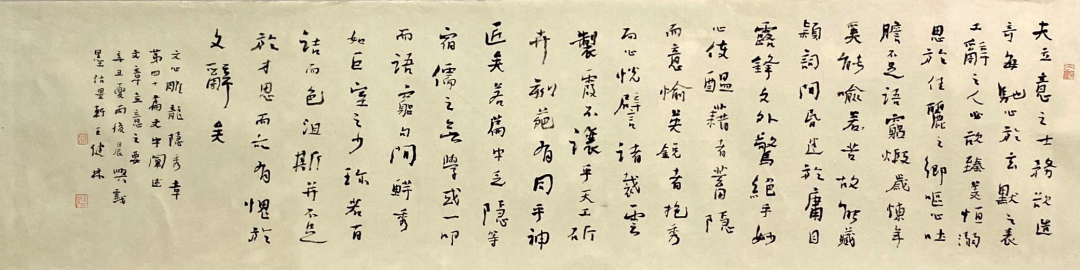 夫立意之士務欲造
奇每馳心於玄默之表
工辭之人必欲臻美恒溺
思於佳麗之鄉嘔心吐
膽不足語窮煅歲煉年
奚能喻苦故能藏
穎詞間昏迷於庸目
露鋒文外驚絕乎妙
心使醖藉者蓄隱
而意愉英銳者抱秀
而心悅譬諸裁雲
製霞不讓乎天工斫
卉刻葩有同乎神
匠矣若篇中乏隱等
宿儒之無學或一叩
而語窮句間鮮秀
如巨室之少珍若百
詰而色沮斯并不足
於才思而亦有愧於
文辭矣
文心雕龍隱秀章
第四十篇文中闡述
文章立意之要
辛丑夏雨後晨興試
墨於墨軒王健林